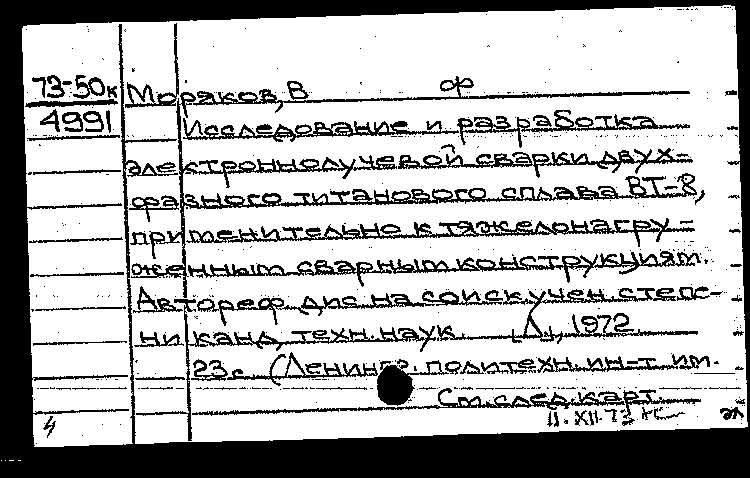 73-50к
4991
Моряков, В ф
Исследование и разработка
электроннолучевой сварки двух-
фазного титанового сплава ВТ-8,
применительно к тяжелонагру-
женным сварным конструкциям.
Автореф. дис. на соиск. учен. степе-
ни канд. техн. наук. [Л.], 1972.
23 с. (Ленингр. политехн. ин-т им.
См. след. карт.
4
11.XII.73
эл